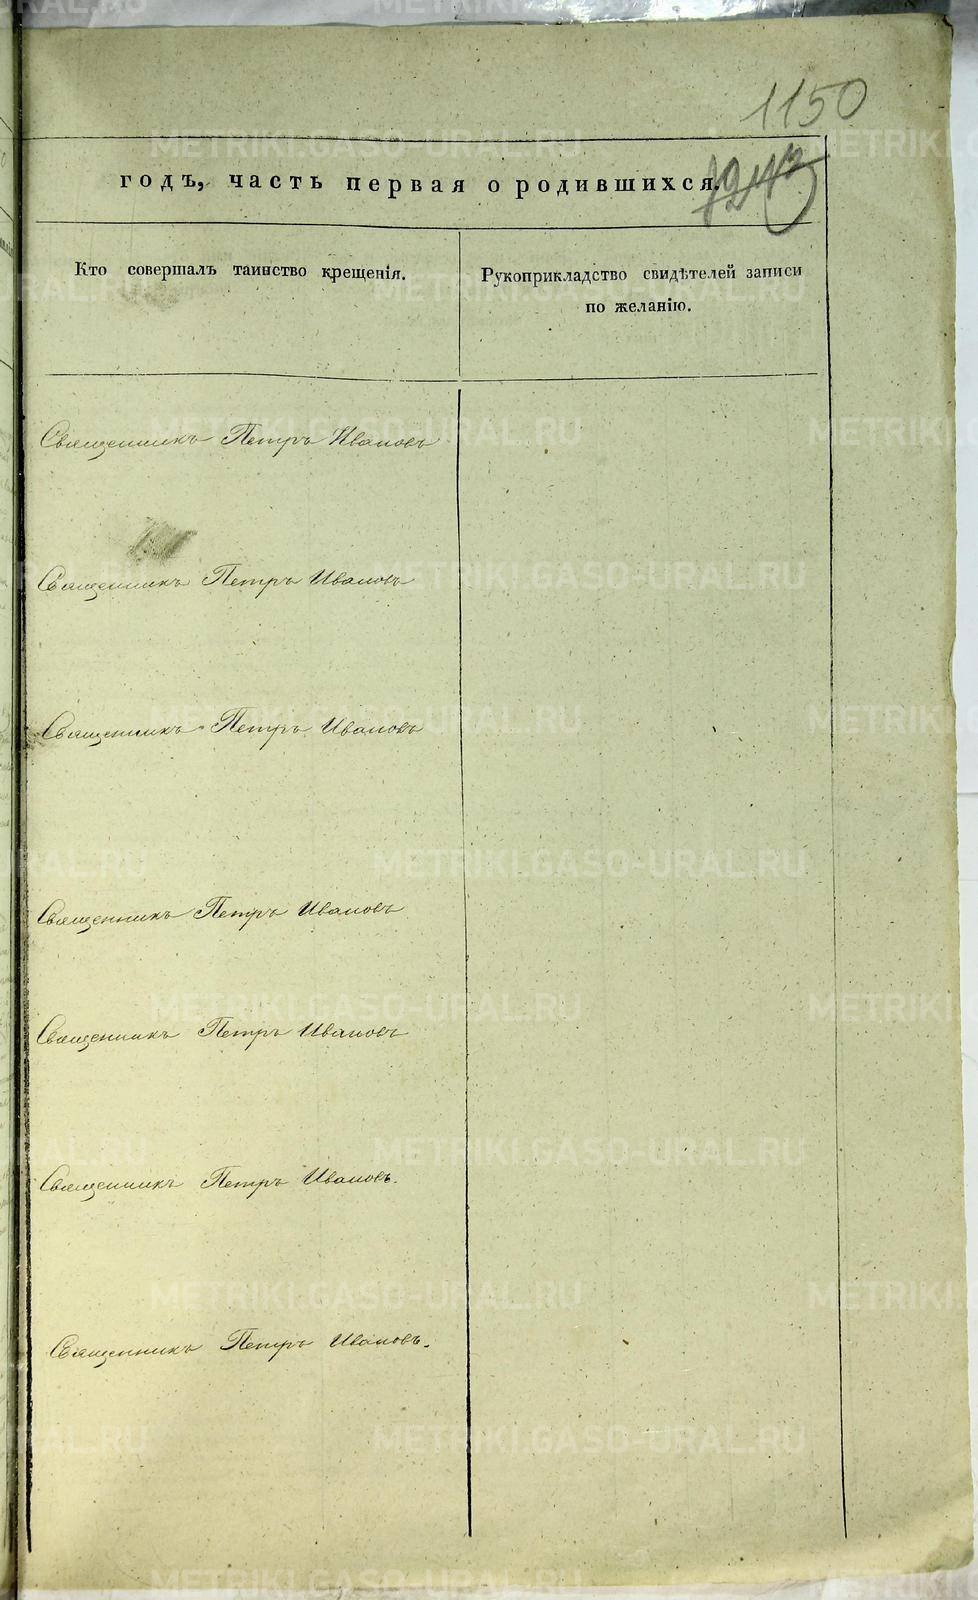 1150
годъ, часть первая о родившихся.
Кто совершалъ таинство крещенія.
Рукоприкладство свидѣтелей записи
по желанію.
Священникъ Петръ Ивановъ
Священникъ Петръ Ивановъ
Священникъ Петръ Ивановъ
Священникъ Петръ Ивановъ
Священникъ Петръ Ивановъ
Священникъ Петръ Ивановъ.
Священникъ Петръ Ивановъ.
METRIKI.GASO-URAL.RU